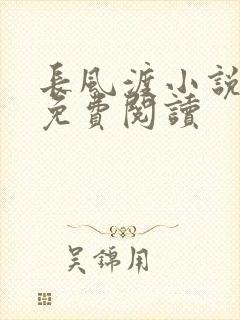 長風渡小說
免費閱讀
吴錦用